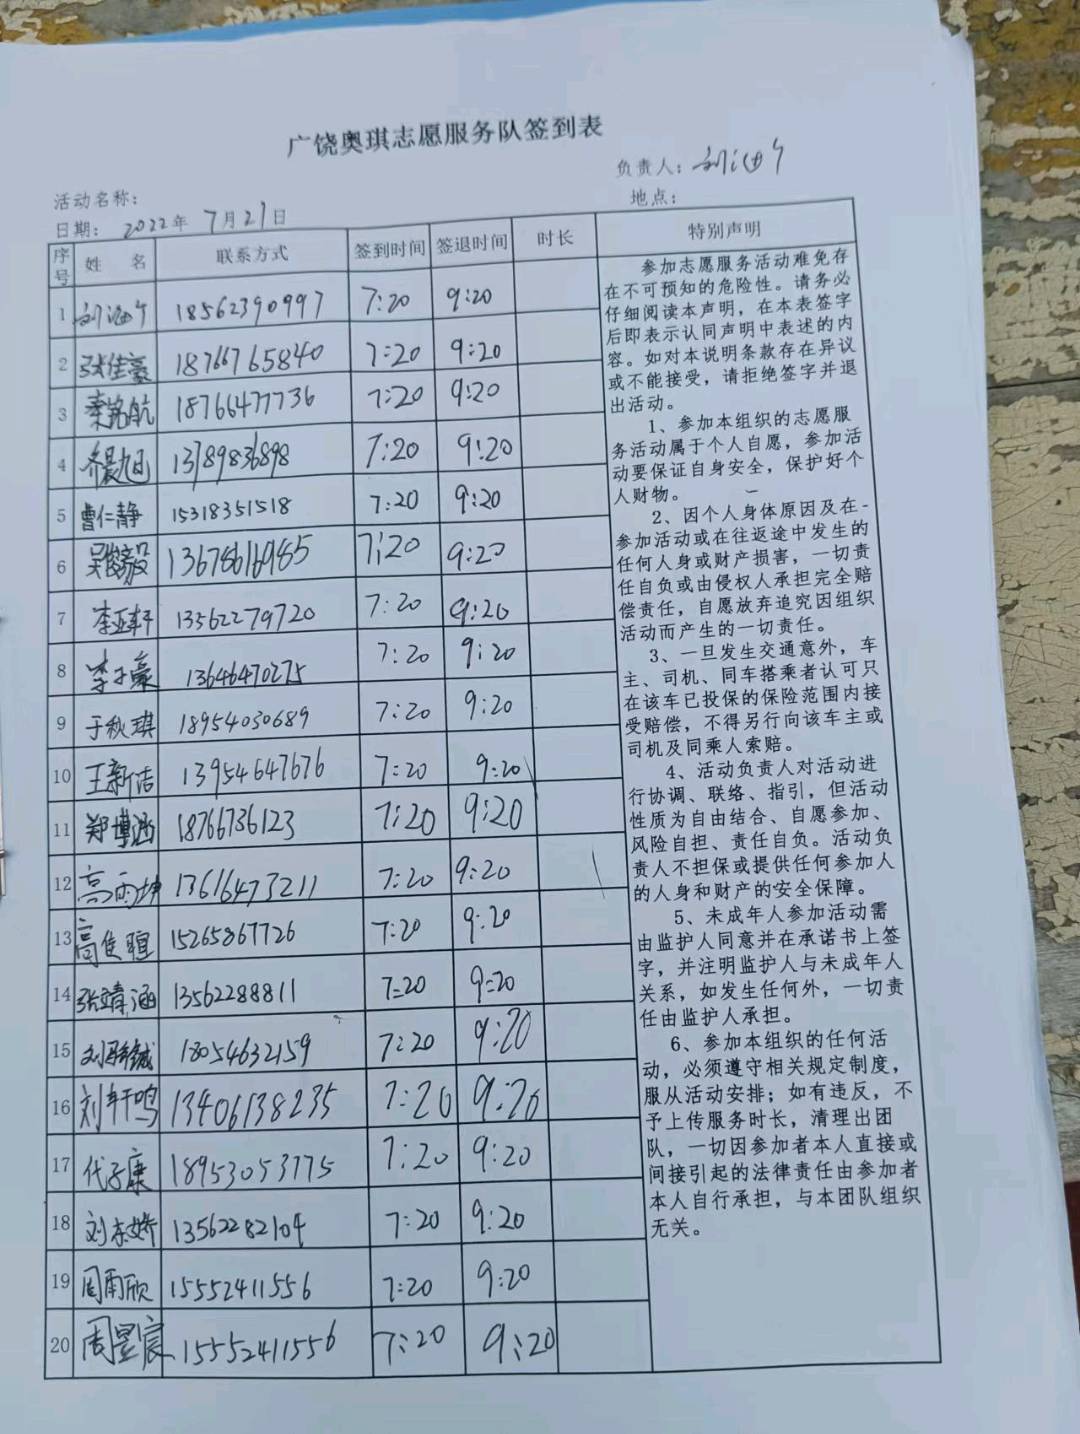 广饶奥琪志愿服务队签到表
负责人：
活动名称：
地点：
日期：2022年7月21日
序号 姓名 联系方式 签到时间 签退时间 时长 特别声明
1 18562390997 7:20 9:20
2 张佳豪 18766765840 7:20 9:20
3 秦铭航 18766477736 7:20 9:20
4 齐晨旭 13789836898 7:20 9:20
5 曹仁静 15318351518 7:20 9:20
6 13678616985 7:20 9:20
7 李亚轩 13562279720 7:20 9:20
8 李子豪 13646470275 7:20 9:20
9 于秋琪 18954030689 7:20 9:20
10 王新洁 13954647676 7:20 9:20
11 郑博涵 18766736123 7:20 9:20
12 高雨坤 13616473211 7:20 9:20
13 高佳暄 15265867726 7:20 9:20
14 张靖涵 13562288811 7:20 9:20
15 18054632159 7:20 9:20
16 刘轩鸣 13406138235 7:20 9:20
17 代子康 18953053775 7:20 9:20
18 刘东娇 13562282104 7:20 9:20
19 周雨欣 15552411556 7:20 9:20
20 周昱宸 15552411556 7:20 9:20
参加志愿服务活动难免存
在不可预知的危险性。请务必
仔细阅读本声明，在本表签字
后即表示认同声明中表述的内
容。如对本说明条款存在异议
或不能接受，请拒绝签字并退
出活动。
1、参加本组织的志愿服
务活动属于个人自愿，参加活
动要保证自身安全，保护好个
人财物。
2、因个人身体原因及在
参加活动或在往返途中发生的
任何人身或财产损害，一切责
任自负或由侵权人承担完全赔
偿责任，自愿放弃追究因组织
活动而产生的一切责任。
3、一旦发生交通意外，车
主、司机、同车搭乘者认可只
在该车已投保的保险范围内接
受赔偿，不得另行向该车主或
司机及同乘人索赔。
4、活动负责人对活动进
行协调、联络、指引，但活动
性质为自由结合、自愿参加、
风险自担、责任自负。活动负
责人不担保或提供任何参加人
的人身和财产的安全保障。
5、未成年人参加活动需
由监护人同意并在承诺书上签
字，并注明监护人与未成年人
关系，如发生任何外，一切责
任由监护人承担。
6、参加本组织的任何活
动，必须遵守相关规定制度，
服从活动安排；如有违反，不
予上传服务时长，清理出团
队，一切因参加者本人直接或
间接引起的法律责任由参加者
本人自行承担，与本团队组织
无关。